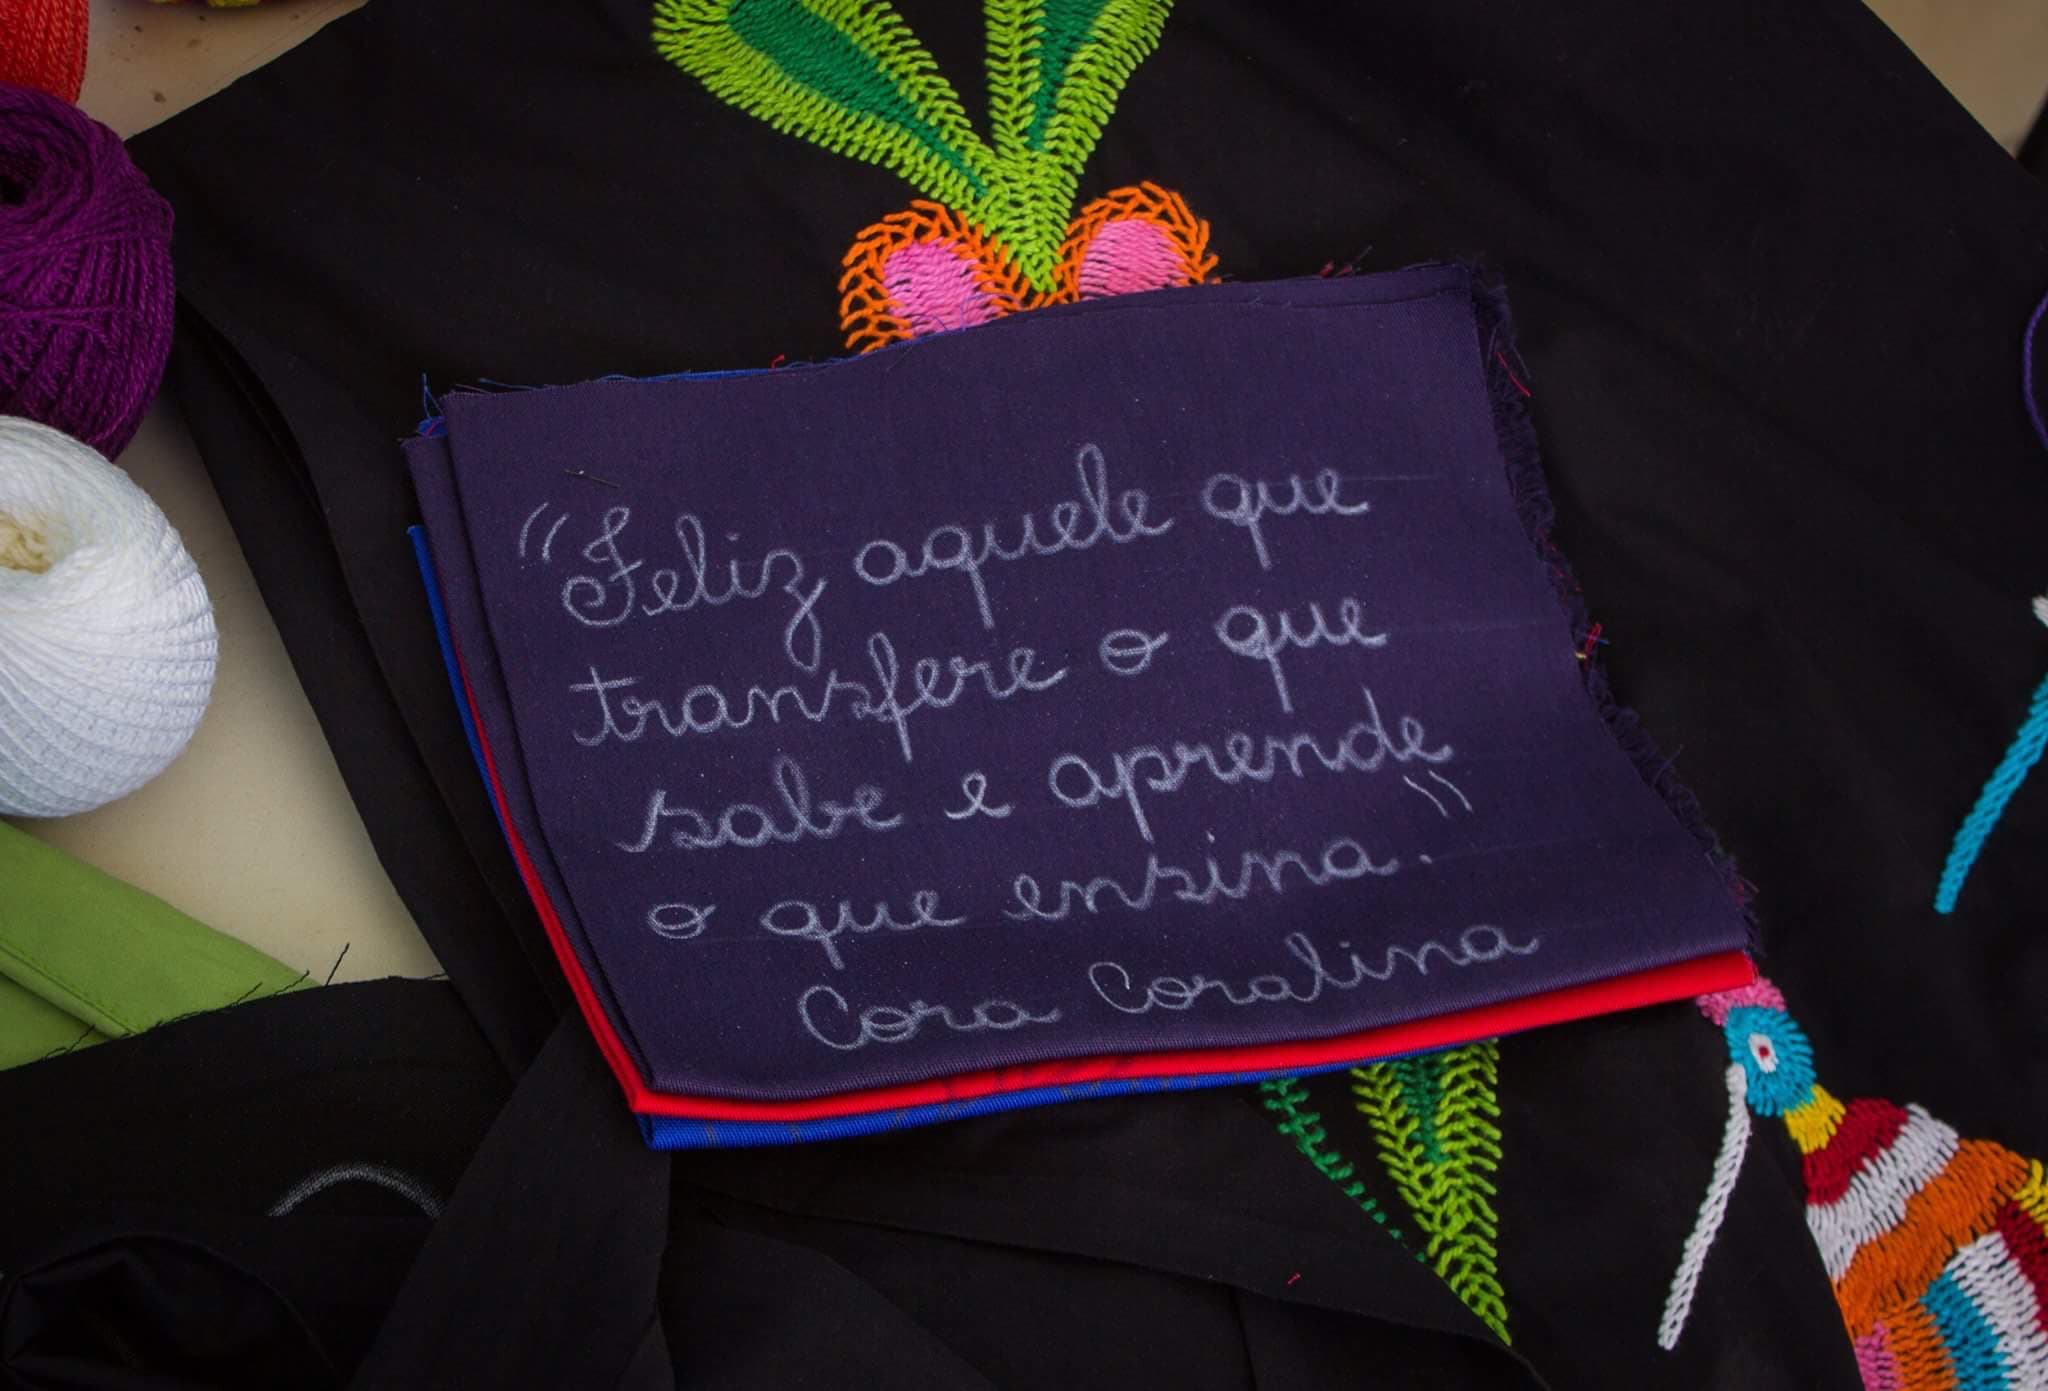 “Feliz aquele que
transfere o que
sabe e aprende
o que ensina.”
Cora Coralina